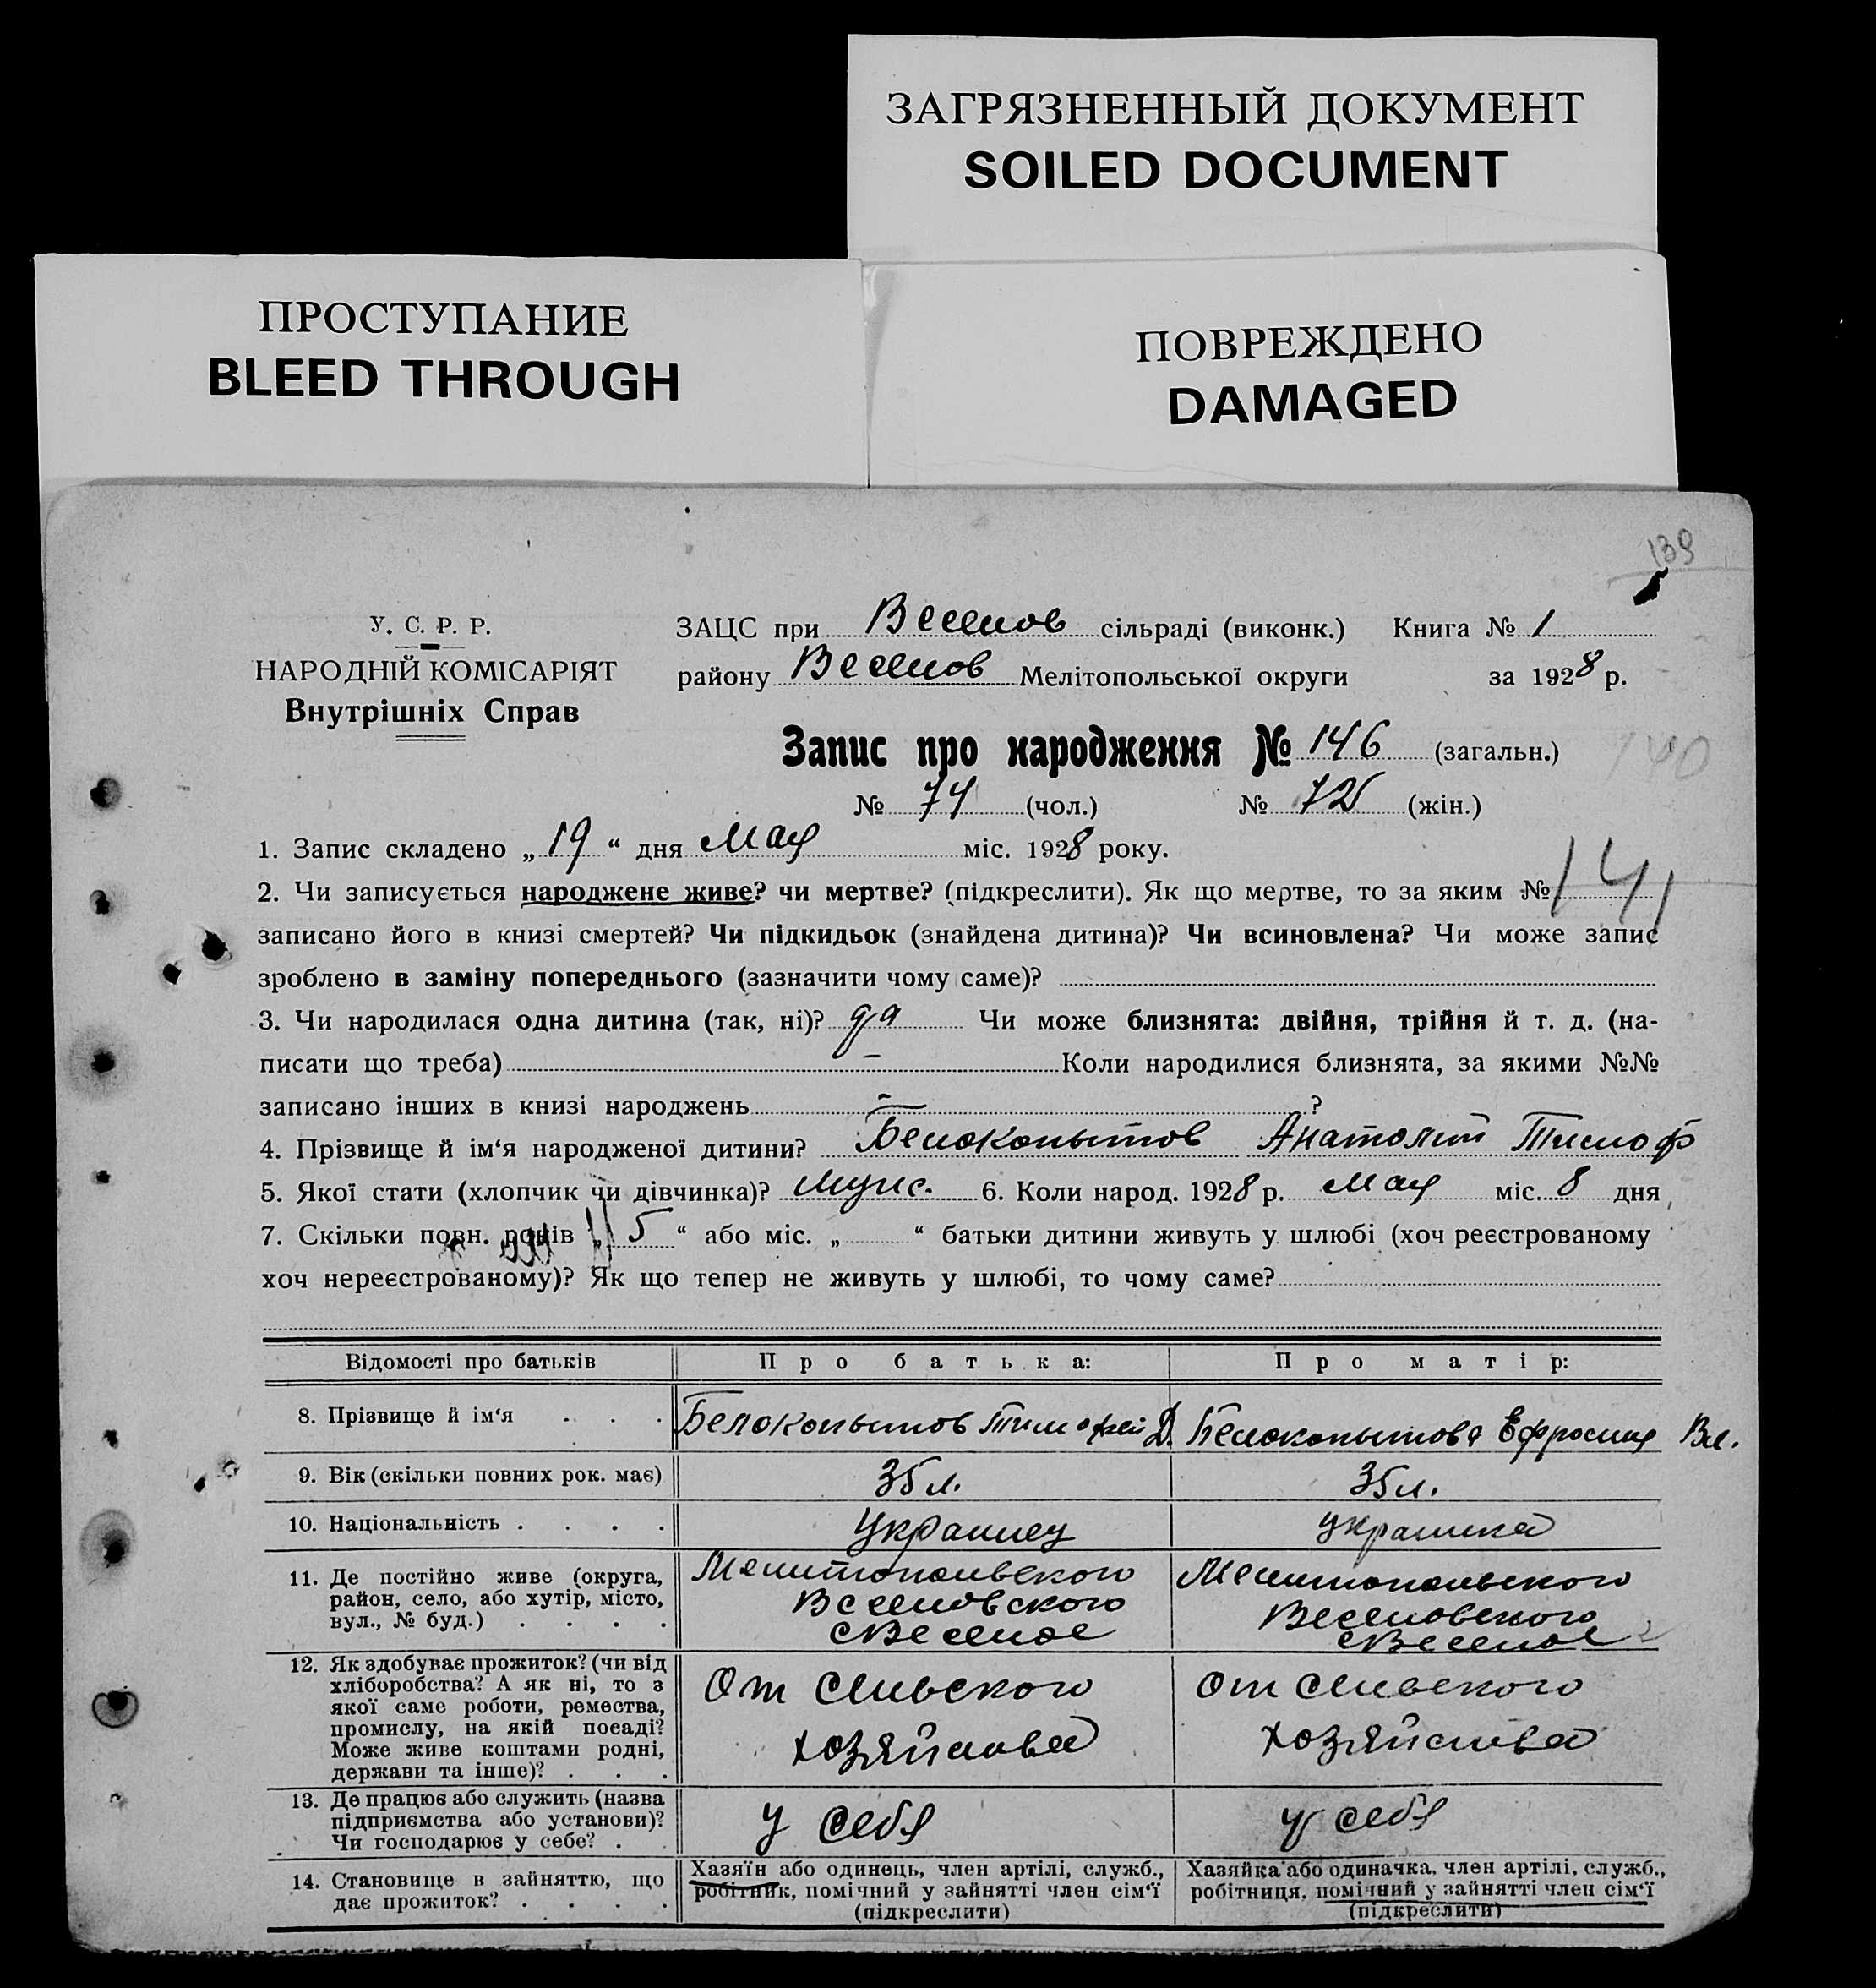 ЗАГРЯЗНЕННЫЙ ДОКУМЕНТ
SOILED DOCUMENT
ПРОСТУПАНИЕ
BLEED THROUGH
ПОВРЕЖДЕНО
DAMAGED
139
У. С. Р. Р.
НАРОДНІЙ КОМІСАРІЯТ
Внутрішніх Справ
ЗАЦС при Веселов сільраді (виконк.) Книга № 1
району Веселов Мелітопольської округи за 1928 р.
Запис про народження № 146 (загальн.)
140
№ 74 (чол.) № 72 (жін.)
1. Запис складено „ 19 “ дня Мая міс. 1928 року.
2. Чи записується народжене живе? чи мертве? (підкреслити). Як що мертве, то за яким №
141
записано його в книзі смертей? Чи підкидьок (знайдена дитина)? Чи всиновлена? Чи може запис
зроблено в заміну попереднього (зазначити чому саме)?
3. Чи народилася одна дитина (так, ні)? да Чи може близнята: двійня, трійня й т. д. (на-
писати що треба) — Коли народилися близнята, за якими №№
записано інших в книзі народжень - ?
4. Прізвище й ім‘я народженої дитини? Белокопытов Анатолий Тимоф
5. Якої стати (хлопчик чи дівчинка)? Мужс. 6. Коли народ. 1928 р. Мая міс. 8 дня
7. Скільки повн. років „ 5 “ або міс. „ “ батьки дитини живуть у шлюбі (хоч реєстрованому
хоч нереєстрованому)? Як що тепер не живуть у шлюбі, то чому саме?
Відомості про батьків Про батька: Про матір:
8. Прізвище й ім‘я . . . Белокопытов Тимофей Д. Белокопытова Ефросиия Вл.
9. Вік (скільки повних рок. має) 35 л. 35 л.
10. Національність . . . . Украинец украинка
11. Де постійно живе (округа, район, село, або хутір, місто, вул., № буд.) . . . .
Мелитопольского
Веселовского
с Веселое
Мелитопольского
Веселовского
с Веселое
12. Як здобуває прожиток? (чи від хліборобства? А як ні, то з якої саме роботи, ремества, промислу, на якій посаді? Може живе коштами родні, держави та інше)? . . .
От сельского
хозяйства
От сельского
хозяйства
13. Де працює або служить (назва підприємства або установи)? Чи господарює у себе? .
У себя
у себя
14. Становище в зайняттю, що дає прожиток? . . . .
Хазяїн або одинець, член артілі, служб.,
робітник, помічний у зайнятті член сім‘ї
(підкреслити)
Хазяйка або одиначка, член артілі, служб.,
робітниця, помічний у зайнятті член сім‘ї
(підкреслити)